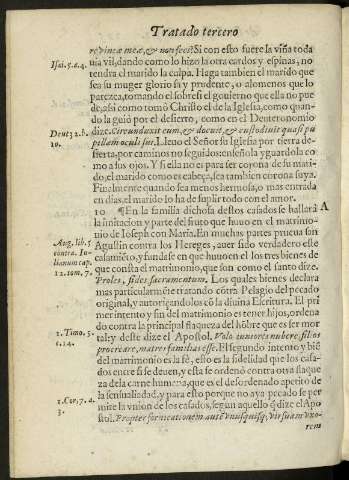 Tratado tercero
re vineæ meæ, & non feci? Si con esto fuere la viña toda
Isai. 5. a. 4.
uia vil, dando como lo hizo la otra cardos y espinas, no
tendra el marido la culpa. Haga tambien el marido que
sea su muger gloriosa y prudente, o alomenos que lo
parezca, tomando el sobre si el gouierno que ella no pue
de, assi como tomò Christo el de la Iglesia, como quan-
do la guiò por el desierto, como en el Deuteronomio
Deut. 32. b.
10.
dize. Circunduxit eum, & docuit, & custodiuit quasi pu
pillam oculi sui. Lleuò el Señor su Iglesia por tierra de-
sierta, por caminos no seguidos: enseñola y guardola co
mo a sus ojos. Y si ella no es para ser corona de su mari-
do, el marido como es cabeça, sea tambien corona suya.
Finalmente quando sea menos hermosa, o mas entrada
en dias, el marido lo ha de suplir todo con el amor.
10 ¶ En la familia dichosa destos casados se hallarà
A
la imitacion y parte del fruto que huuo en el matrimo-
nio de Ioseph con Maria. En muchas partes prueua san
Aug. lib. 5
contra. Iu-
lianum cap.
12. tom. 7.
Agustin contra los Hereges, auer sido verdadero este
casamiẽto, y funda se en que huuo en el los tres bienes de
que consta el matrimonio, que son como el santo dize.
Proles, fides, sacramentum. Los quales bienes declara
mas particularmẽte tratando cõtra Pelagio del pecado
original, y autorizandolos cõ la diuina Escritura. El pri
mer intento y fin del matrimonio es tener hijos, ordena
do contra la principal flaqueza del hõbre que es ser mor
1. Timo. 5.
c. 14.
tal: y deste dize el Apostol. Volo iuniores nubere filios
procreare, matres familias esse. El segundo intento y biẽ
del matrimonio es la fè, esto es la fidelidad que los casa-
dos entre si se deuen, y esta se ordenò contra otra flaque
za de la carne humana, que es el desordenado apetito de
la sensualidad, y para esto porque no aya pecado se per
1. Cor. 7. a.
3.
mite la vniõn de los casados, segun aquello q̃ dize el Apo
stol. Propter fornicationem autẽ vnusquisq; vir suam vxo-
rem